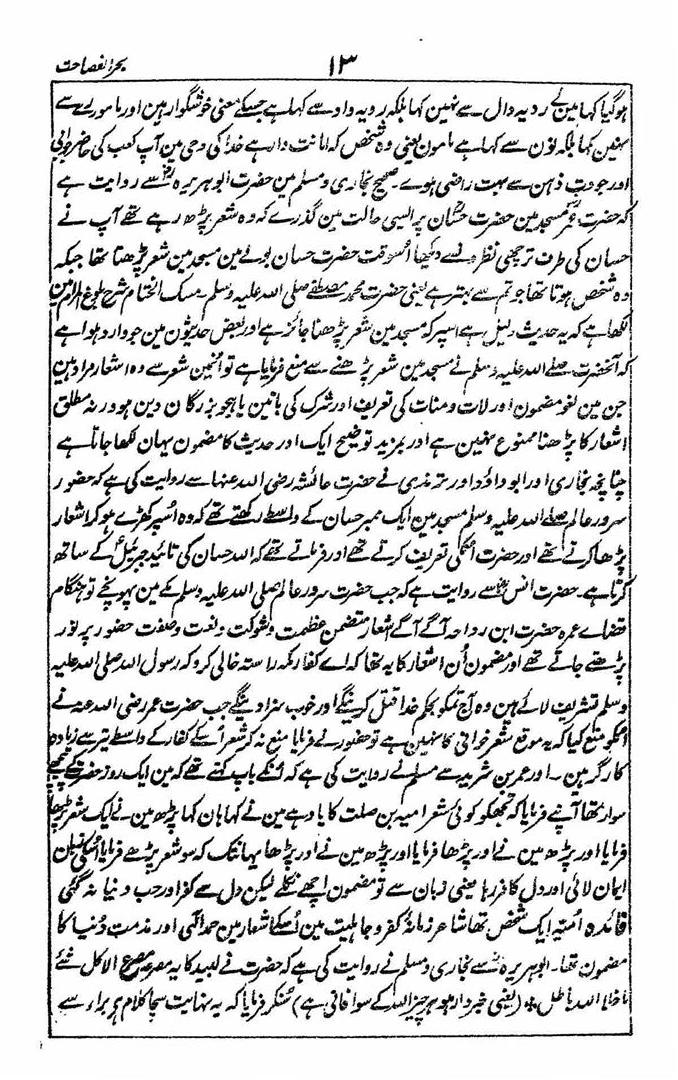 ۱۳ بحر الفصاحت
ہوگیا کہا مین نے ردیہ دال سے نہین کہا بلکہ رویہ واو سے کہا ہے جسکے معنی خوشگوار ہین اور مامور رے سے
نہین کہا بلکہ نون سے کہا ہے مامون یعنی وہ شخص کہ امانت دار ہے خدا کی وحی مین آپ کعب کی حاضر جوابی
اور جودت ذہن سے بہت راضی ہوے ۔ صحیح بخاری ومسلم مین حضرت ابو ہریرہؓ سے روایت ہے
کہ حضرت عمرؓ مسجد مین حضرت حسّان پر ایسی حالت مین گذرے کہ وہ شعر پڑھ رہے تھے آپ نے
حسان کی طرف ترچھی نظر سے دیکھا اُسوقت حضرت حسان بولے مین مسجد مین شعر پڑھتا تھا جبکہ
وہ شخص ہوتا تھا جو تم سے بہتر ہے یعنی حضرت محمد مصطفے صلی اللہ علیہ وسلم ۔ مسک الختام شرح بلوغ المرام مین
لکھا ہے کہ یہ حدیث دلیل ہے اسپر کہ مسجد مین شعر پڑھنا جائز ہے اور بعض حدیثون مین جو وارد ہوا ہے
کہ آنحضرت صلے اللہ علیہ وسلم نے مسجد مین شعر پڑھنے سے منع فرمایا ہے تو اُنہین شعر سے وہ اشعار مراد ہین
جن مین لغو مضمون اور لات و منات کی تعریف اور شرک کی باتین یا ہجو بزرگان دین ہو ورنہ مطلق
اشعار کا پڑھنا ممنوع نہین ہے اور بمزید توضیح ایک اور حدیث کا مضمون یہان لکھا جاتا ہے
چنانچہ بخاری اور ابو داؤد اور ترمذی نے حضرت عائشہ رضی اللہ عنہا سے روایت کی ہے کہ حضور
سرور عالم صلے اللہ علیہ وسلم مسجد مین ایک ممبر حسان کے واسطے رکھتے تھے کہ وہ اُسپر کھڑے ہوکر اشعار
پڑھا کرتے تھے اور حضرت اُنکی تعریف کرتے تھے اور فرماتے تھے کہ اللہ حسان کی تائید جبرئیل کے ساتھ
کرتا ہے ۔ حضرت انسؓ سے روایت ہے کہ جب حضرت سرور عالم صلی اللہ علیہ وسلم مکے مین پہونچے تو ہنگام
قضاے عمرہ حضرت ابن رواحہ آگے آگے اشعار متضمن عظمت و شوکت و نعت و صفت حضور پر نور
پڑھتے جاتے تھے اور مضمون اُن اشعار کا یہ تھا کہ اے کفار مکہ راستہ خالی کرو کہ رسول اللہ صلی اللہ علیہ
وسلم تشریف لائے ہین وہ آج تمکو بحکم خدا قتل کرینگے اور خوب سزا دینگے جب حضرت عمر رضی اللہ عنہ نے
اُنکو منع کیا کہ یہ موقع شعر خوانی کا نہین ہے تو حضور نے فرمایا منع نہ کر شعر اُسکے کفار کے واسطے تیر سے زیادہ
کارگر ہین ۔ اور عمر بن شرید سے مسلم نے روایت کی ہے کہ اُنکے باپ کہتے تھے کہ مین ایک روز حضرت کے پیچھے
سوار تھا آپنے فرمایا کہ تجھکو کوئی شعر امیہ بن صلت کا یاد ہے مین نے کہا ہان کہا پڑھ مین نے ایک شعر پڑھا
فرمایا اور پڑھ مین نے اور پڑھا فرمایا اور پڑھ مین نے اور پڑھا یہانتک کہ سو شعر پڑھے فرمایا اُسکی زبان
ایمان لائی اور دل کافر رہا یعنی زبان سے تو مضمون اچھے نکلے لیکن دل سے کفر اور حب دنیا نہ گئی
فائدہ اُمیّہ ایک شخص تھا شاعر زمانۂ کفر و جاہلیت مین اُسکے اشعار مین حمد الٰہی اور مذمت دُنیا کا
مضمون تھا ۔ ابو ہریرہؓ سے بخاری ومسلم نے روایت کی ہے کہ حضرت نے لبید کا یہ مصرعہ مصرع الا کل شئے
ما خلا اللہ باطل * (یعنی خبردار ہو ہر چیز اللہ کے سوا فانی ہے) سُنکر فرمایا کہ یہ نہایت سچا کلام ہی براء سے